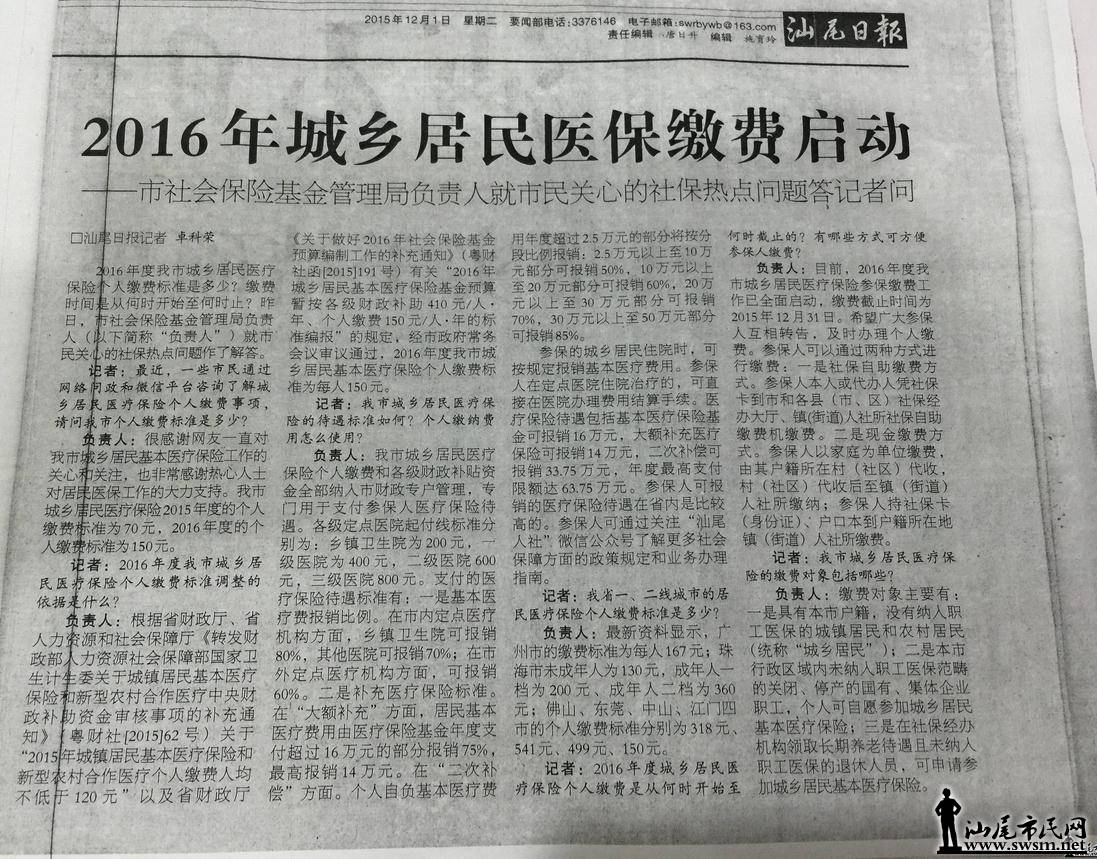 2015年12月1日 星期二 要闻部电话:3376146 电子邮箱:swrbywb@163.com
责任编辑 唐日升 编辑 施育玲
汕尾日報
2016年城乡居民医保缴费启动
——市社会保险基金管理局负责人就市民关心的社保热点问题答记者问
□汕尾日报记者 卓科荣
2016年度我市城乡居民医疗
保险个人缴费标准是多少？缴费
时间是从何时开始至何时止？昨
日，市社会保险基金管理局负责
人（以下简称“负责人”）就市
民关心的社保热点问题作了解答。
记者：最近，一些市民通过
网络问政和微信平台咨询了解城
乡居民医疗保险个人缴费事项，
请问我市个人缴费标准是多少？
负责人：很感谢网友一直对
我市城乡居民基本医疗保险工作的
关心和关注，也非常感谢热心人士
对居民医保工作的大力支持。我市
城乡居民医疗保险2015年度的个人
缴费标准为70元，2016年度的个
人缴费标准为150元。
记者：2016年度我市城乡居
民医疗保险个人缴费标准调整的
依据是什么？
负责人：根据省财政厅、省
人力资源和社会保障厅《转发财
政部人力资源社会保障部国家卫
生计生委关于城镇居民基本医疗
保险和新型农村合作医疗中央财
政补助资金审核事项的补充通
知》（粤财社[2015]62号）关于
“2015年城镇居民基本医疗保险和
新型农村合作医疗个人缴费人均
不低于120元”以及省财政厅
《关于做好2016年社会保险基金
预算编制工作的补充通知》（粤财
社函[2015]191号）有关“2016年
城乡居民基本医疗保险基金预算
暂按各级财政补助410元/人·
年、个人缴费150元/人·年的标
准编报”的规定，经市政府常务
会议审议通过，2016年度我市城
乡居民基本医疗保险个人缴费标
准为每人150元。
记者：我市城乡居民医疗保
险的待遇标准如何？个人缴纳费
用怎么使用？
负责人：我市城乡居民医疗
保险个人缴费和各级财政补贴资
金全部纳入市财政专户管理，专
门用于支付参保人医疗保险待
遇。各级定点医院起付线标准分
别为：乡镇卫生院为200元，一
级医院为400元，二级医院600
元，三级医院800元。支付的医
疗保险待遇标准有：一是基本医
疗费报销比例。在市内定点医疗
机构方面，乡镇卫生院可报销
80%，其他医院可报销70%；在市
外定点医疗机构方面，可报销
60%。二是补充医疗保险标准。
在“大额补充”方面，居民基本
医疗费用由医疗保险基金年度支
付超过16万元的部分报销75%，
最高报销14万元。在“二次补
偿”方面。个人自负基本医疗费
用年度超过2.5万元的部分将按分
段比例报销：2.5万元以上至10万
元部分可报销50%，10万元以上
至20万元部分可报销60%，20万
元以上至30万元部分可报销
70%，30万元以上至50万元部分
可报销85%。
参保的城乡居民住院时，可
按规定报销基本医疗费用。参保
人在定点医院住院治疗的，可直
接在医院办理费用结算手续。医
疗保险待遇包括基本医疗保险基
金可报销16万元，大额补充医疗
保险可报销14万元，二次补偿可
报销33.75万元，年度最高支付
限额达63.75万元。参保人可报
销的医疗保险待遇在省内是比较
高的。参保人可通过关注“汕尾
人社”微信公众号了解更多社会
保障方面的政策规定和业务办理
指南。
记者：我省一、二线城市的居
民医疗保险个人缴费标准是多少？
负责人：最新资料显示，广
州市的缴费标准为每人167元；珠
海市未成年人为130元，成年人一
档为200元、成年人二档为360
元；佛山、东莞、中山、江门四
市的个人缴费标准分别为318元、
541元、499元、150元。
记者：2016年度城乡居民医
疗保险个人缴费是从何时开始至
何时截止的？有哪些方式可方便
参保人缴费？
负责人：目前，2016年度我
市城乡居民医疗保险参保缴费工
作已全面启动，缴费截止时间为
2015年12月31日。希望广大参保
人互相转告，及时办理个人缴
费。参保人可以通过两种方式进
行缴费：一是社保自助缴费方
式。参保人本人或代办人凭社保
卡到市和各县（市、区）社保经
办大厅、镇(街道)人社所社保自助
缴费机缴费。二是现金缴费方
式。参保人以家庭为单位缴费，
由其户籍所在村（社区）代收，
村（社区）代收后至镇（街道）
人社所缴纳；参保人持社保卡
（身份证）、户口本到户籍所在地
镇（街道）人社所缴费。
记者：我市城乡居民医疗保
险的缴费对象包括哪些？
负责人：缴费对象主要有：
一是具有本市户籍，没有纳入职
工医保的城镇居民和农村居民
（统称“城乡居民”）；二是本市
行政区域内未纳入职工医保范畴
的关闭、停产的国有、集体企业
职工，个人可自愿参加城乡居民
基本医疗保险；三是在社保经办
机构领取长期养老待遇且未纳入
职工医保的退休人员，可申请参
加城乡居民基本医疗保险。
汕尾市民网
www.swsm.net